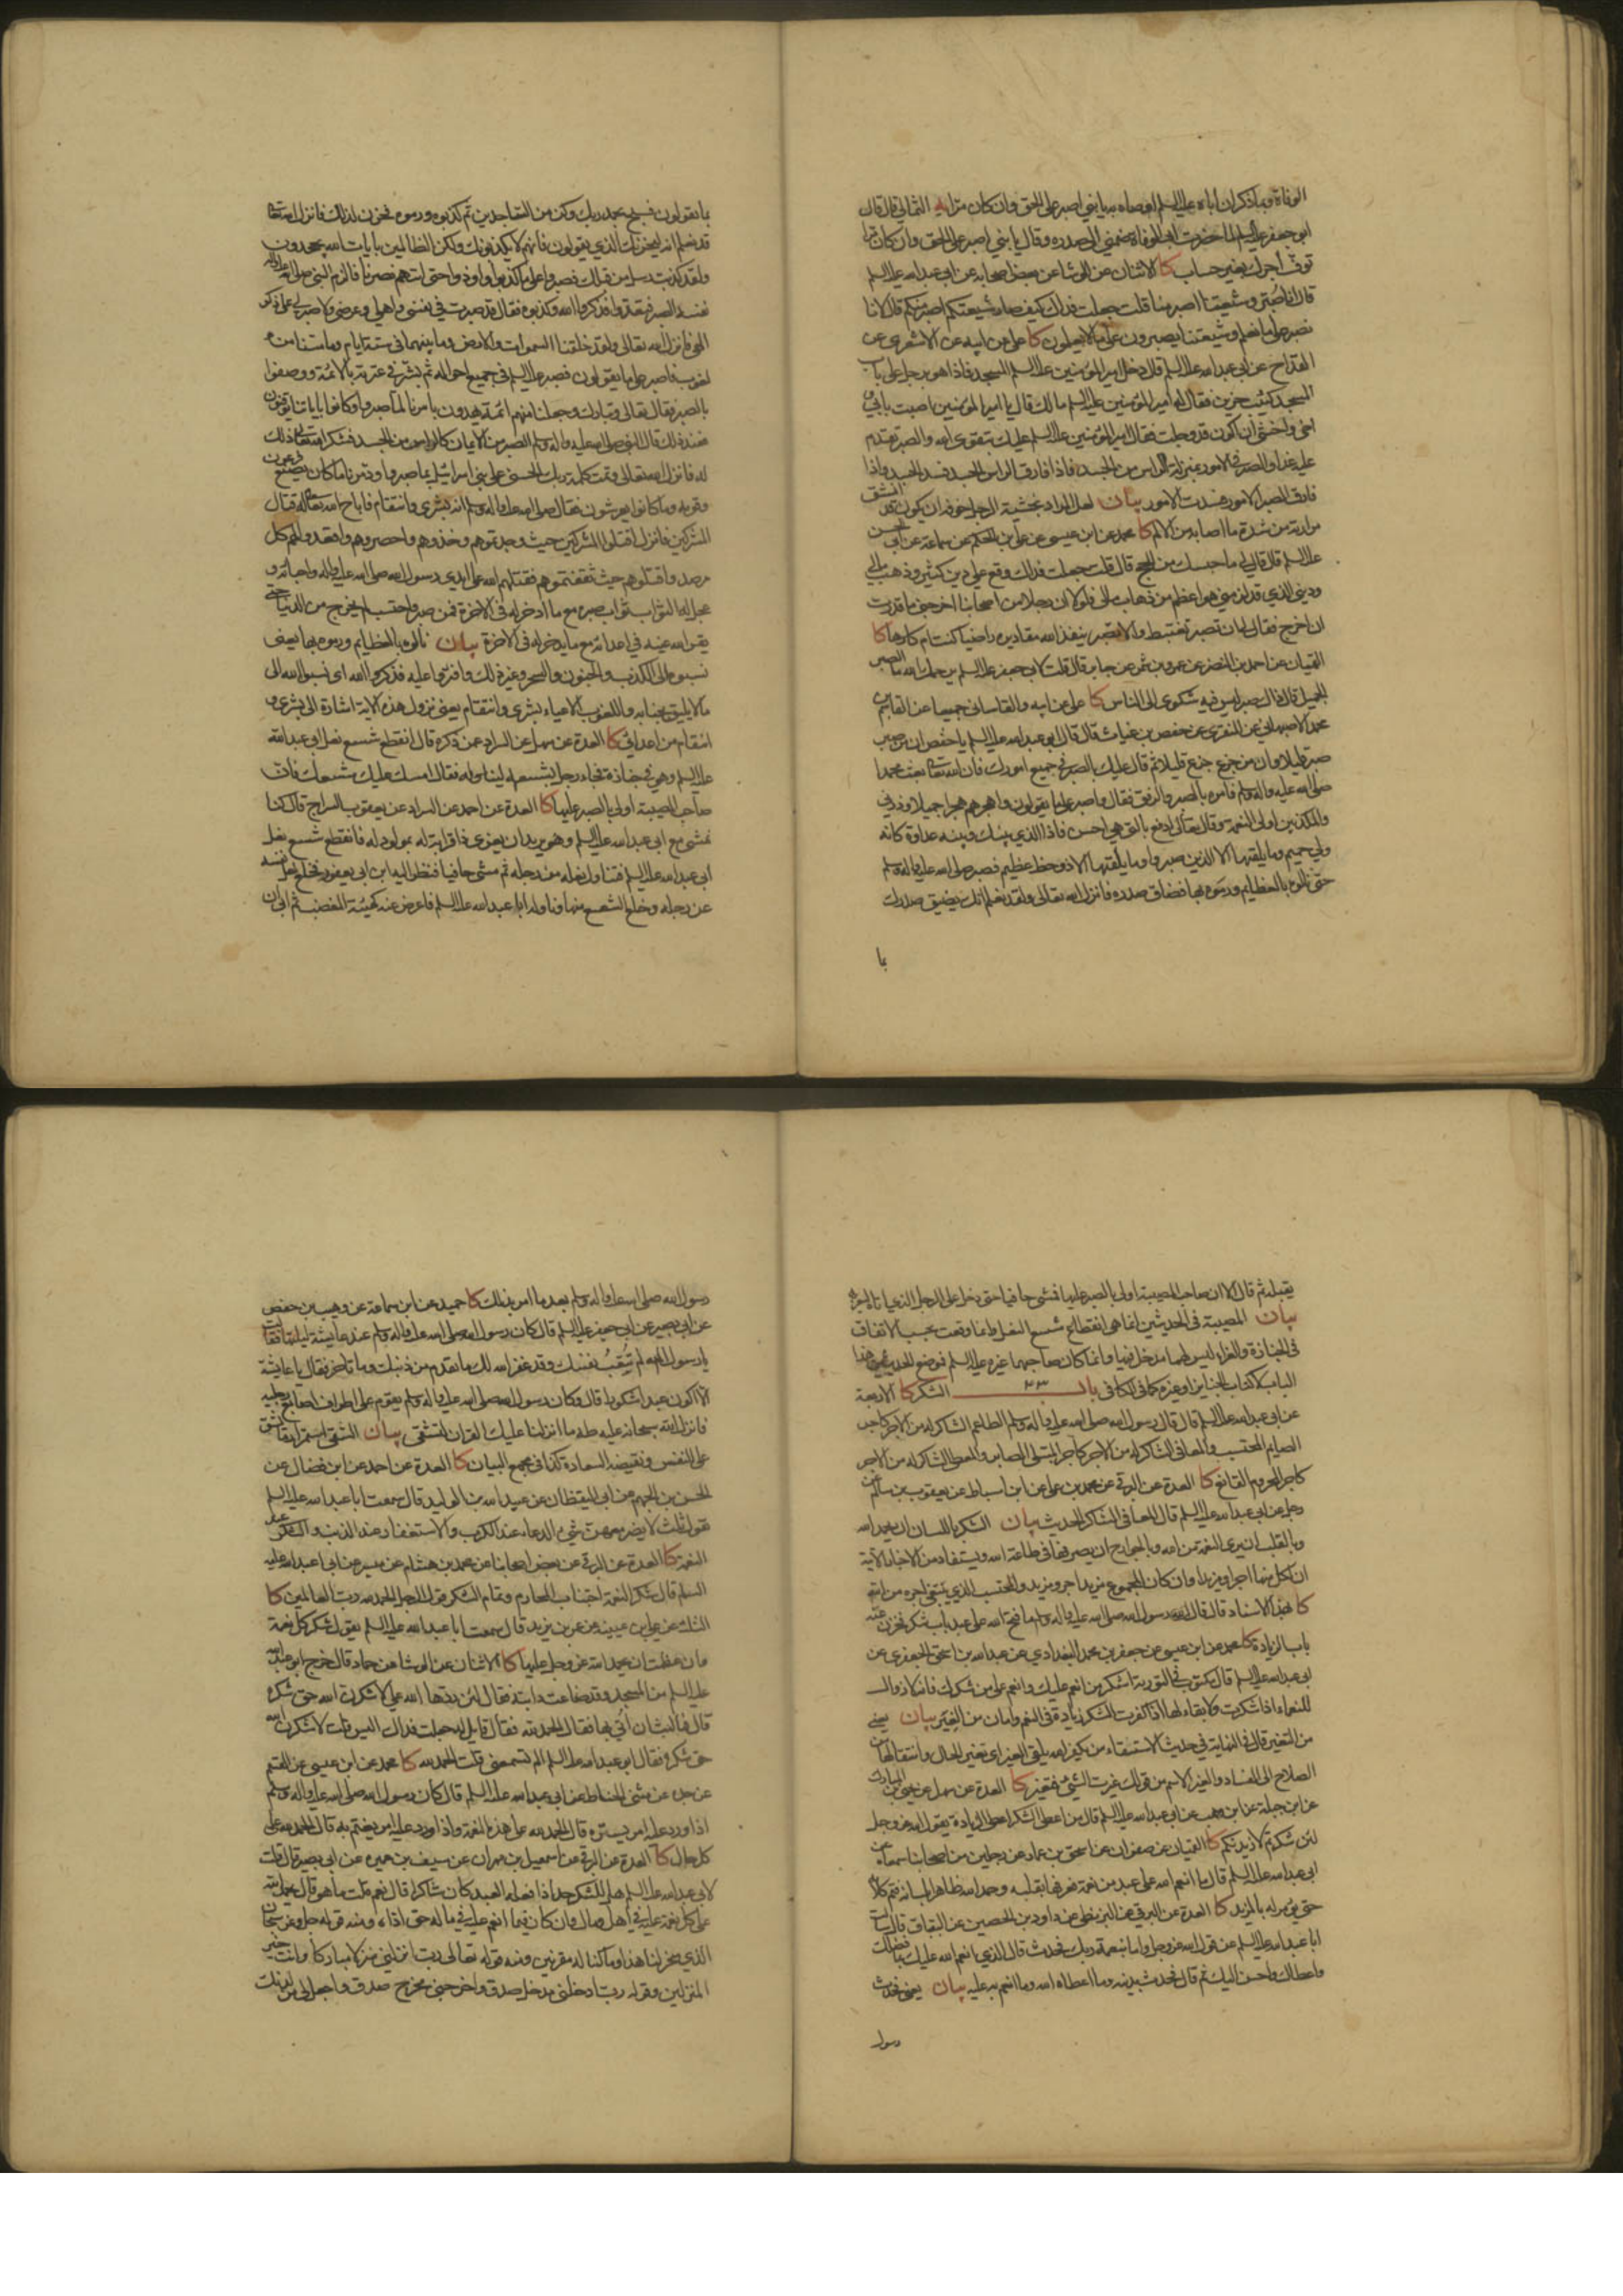 الوفاة وبما ذكر ان اباه عليه السلم اوصاه به يا بني اصبر على الحق وان كان مرا يه الثمالي قال قال
ابو جعفر عليه السلم لما حضرت ابي الوفاة ضمني الى صدره وقال يا بني اصبر على الحق وان كان مرا
توف أجرك بغير حساب كا الاثنان عن الوشا عن بعض اصحابه عن ابي عبد الله عليه السلم
قال انا صُبّر وشيعتنا اصبر منا قلت جعلت فداك كيف صار شيعتكم اصبر منكم قال لانا
نصبر على ما نعلم وشيعتنا يصبرون على ما لا يعلمون كا علي عن ابيه عن الاشعري عن
القداح عن ابي عبد الله عليه السلم قال دخل امير المؤمنين عليه السلم المسجد فاذا هو برجل على باب
المسجد كئيب حزين فقال له امير المؤمنين عليه السلم ما لك قال يا امير المؤمنين اصبت بابي و
اخي واخشى أن اكون قد وجلت فقال امير المؤمنين عليه السلم عليك بتقوى الله والصبر تقدم
عليه غدا والصبر في الامور بمنزلة الراس من الجسد فاذا فارق الراس الجسد فسد الجسد واذا
فارق الصبر الامور فسدت الامور بيان لعل المراد بخشية الوجل خوفه ان يكون قد انشق
مرارته من شدة ما اصابه من الالم كا محمد عن ابن عيسى عن علي بن الحكم عن سماعة عن ابي الحسن
عليه السلم قال قال لي ما حبسك من الحج قال قلت جعلت فداك وقع علي دين كثير وذهب مالي
وديني الذي قد لزمني هو اعظم من ذهاب مالي فلولا ان رجلا من اصحابنا اخرجني ما قدرت
ان اخرج فقال لي ان تصبر تغتبط والا تصبر ينفذ الله مقاديره راضيا كنت ام كارها كا
القميان عن احمد بن النضر عن عمرو بن شمر عن جابر قال قلت لابي جعفر عليه السلم يرحمك الله ما الصبر
الجميل قال قال صبر ليس فيه شكوى الى الناس كا علي عن ابيه والقاساني جميعا عن القاسم بن
محمد الاصبهاني عن المنقري عن حفص بن غياث قال قال ابو عبد الله عليه السلم يا حفص ان من صبر
صبر قليلا وان من جزع جزع قليلا ثم قال عليك بالصبر في جميع امورك فان الله تعالى بعث محمدا
صلى الله عليه واله وسلم فامره بالصبر والرفق فقال واصبر على ما يقولون واهجرهم هجرا جميلا وذرني
والمكذبين اولى النعمة وقال تعالى ادفع بالتي هي احسن فاذا الذي بينك وبينه عداوة كانه
ولي حميم وما يلقيها الا الذين صبروا وما يلقيها الا ذو حظ عظيم فصبر صلى الله عليه واله وسلم
حتى نالوه بالعظايم ورموه بها فضاق صدره فانزل الله تعالى ولقد نعلم انك يضيق صدرك
بما
بما يقولون فسبح بحمد ربك وكن من الساجدين ثم كذبوه ورموه فحزن لذلك فانزل الله تعالى
قد نعلم انه ليحزنك الذي يقولون فانهم لا يكذبونك ولكن الظالمين بايات الله يجحدون
ولقد كذبت رسل من قبلك فصبروا على ما كذبوا واوذوا حتى اتيهم نصرنا فالزم النبي صلى الله عليه واله
نفسه الصبر فتعدوا فذكروا الله وكذبوه فقال قد صبرت في نفسي واهلي وعرضي ولا صبر لي على ذكر
الهي فانزل الله تعالى ولقد خلقنا السموات والارض وما بينهما في ستة ايام وما مسنا من
لغوب فاصبر على ما يقولون فصبر عليه السلم في جميع احواله ثم بشر في عترته بالائمة ووصفوا
بالصبر فقال تعالى وتبارك وجعلنا منهم ائمة يهدون بامرنا لما صبروا وكانوا باياتنا يوقنون
فعند ذلك قال النبي صلى الله عليه واله وسلم الصبر من الايمان كالراس من الجسد فشكر الله تعالى ذلك
له فانزل الله تعالى وتمت كلمة ربك الحسنى على بني اسرائيل بما صبروا ودمرنا ما كان يصنع فرعون
وقومه وما كانوا يعرشون فقال صلى الله عليه واله وسلم انه بشرى وانتقام فاباح الله تعالى له قتال
المشركين فانزل اقتلوا المشركين حيث وجدتموهم وخذوهم واحصروهم واقعدوا لهم كل
مرصد واقتلوهم حيث ثقفتموهم فقتلهم الله على ايدي رسول الله صلى الله عليه واله واحبائه و
عجل له الثواب ثواب صبره مع ما ادخر له في الاخرة فمن صبر واحتسب لم يخرج من الدنيا حتى
يقر الله عينه في اعدائه مع ما يدخر له في الاخرة بيان نالوه بالعظايم ورموه بها يعني
نسبوه الى الكذب والجنون والسحر وغير ذلك وافتروا عليه فذكروا الله اى نسبوا الله الى
ما لا يليق بجنابه واللغوب الاعياء بشرى وانتقام يعني نزول هذه الاية اشارة الى بشرى و
انتقام من اعدائي كا العدة عن سهل عن السراد عمن ذكره قال انقطع شسع نعل ابي عبد الله
عليه السلم وهو في جنازة فجاء رجل بشسعه ليناوله فقال امسك عليك شسعك فان
صاحب المصيبة اولى بالصبر عليها كا العدة عن احمد عن السراد عن يعقوب السراج قال كنا
نمشي مع ابي عبد الله عليه السلم وهو يريد ان يعزي ذا قرابة له بمولود له فانقطع شسع نعل
ابي عبد الله عليه السلم فتناول نعله من رجله ثم مشى حافيا فنظر اليه ابن ابي يعفور فخلع نعل نفسه
من رجله وخلع الشسع منها وناوله ابا عبد الله عليه السلم فاعرض عنه كهيئة المغضب ثم ابى ان
يقبله ثم قال الا ان صاحب المصيبة اولى بالصبر عليها فمشى حافيا حتى دخل على الرجل الذي اتاه ليعزيه
بيان المصيبة في الحديثين انما هي انقطاع شسع النعل وانما وقعت بحسب الاتفاق
في الجنازة والعزاء ليس لهما مدخل فيها وانما كان صاحبهما غيره عليه السلم فوضع الحديثين في هذا
الباب لا كتاب الجنايز او غيره كما في الكافي باب ٢٣ الشكر كا الاربعة
عن ابي عبد الله عليه السلم قال قال رسول الله صلى الله عليه واله وسلم الطاعم الشاكر له من الاجر كاجر
الصايم المحتسب والمعافى الشاكر له من الاجر كاجر المبتلى الصابر والمعطى الشاكر له من الاجر
كاجر المحروم القانع كا العدة عن البرقي عن محمد بن علي عن ابن اسباط عن يعقوب بن سالم عن
رجل عن ابي عبد الله عليه السلم قال المعافى الشاكر الحديث بيان الشكر باللسان ان يحمد الله
وبالقلب ان يرى النعمة من الله وبالجوارح ان يصرفها في طاعة الله ويستفاد من الاخبار الآتية
ان لكل منها اجرا ومزيدا وان كان للمجموع مزيد اجر ومزيد والمحتسب الذي يبتغي اجره من الله
كا بهذا الاسناد قال قال رسول الله صلى الله عليه واله وسلم ما فتح الله على عبد باب شكر فخزن عنه
باب الزيادة كا محمد عن ابن عيسى عن جعفر بن محمد البغدادي عن عبد الله بن اسحق الجعفري عن
ابي عبد الله عليه السلم قال مكتوب في التورية اشكر من انعم عليك وانعم على من شكرك فانه لا زوال
للنعماء اذا شكرت ولا بقاء لها اذا كفرت الشكر زيادة في النعم وامان من الغِيَر بيان يعني
من التغير قال في النهاية في حديث الاستسقاء من يكفر الله يلق الغير اى تغير الحال وانتقالها من
الصلاح الى الفساد والغير الاسم من قولك غيرت الشئ فتغير كا العدة عن سهل عن يحيى بن المبارك
عن ابن جبلة عن ابن وهب عن ابي عبد الله عليه السلم قال من اعطي الشكر اعطي الزيادة يقول الله عز وجل
لئن شكرتم لازيدنكم كا القميان عن صفوان عن اسحق بن عمار عن رجلين من اصحابنا سمعاه عن
ابي عبد الله عليه السلم قال ما انعم الله على عبد من نعمة فعرفها بقلبه وحمد الله ظاهرا بلسانه فتم كلامه
حتى يؤمر له بالمزيد كا العدة عن البرقي عن البزنطي عن داود بن الحصين عن البقباق قال سالت
ابا عبد الله عليه السلم عن قول الله عز وجل واما بنعمة ربك فحدث قال الذي انعم الله عليك بما فضلك
واعطاك واحسن اليك ثم قال فحدث بدينه وما اعطاه الله وما انعم به عليه بيان يعني فحدث
رسول
رسول الله صلى الله عليه واله وسلم بعد ما امر بذلك كا حميد عن ابن سماعة عن وهيب بن حفص
عن ابي بصير عن ابي جعفر عليه السلم قال كان رسول الله صلى الله عليه واله وسلم عند عايشة ليلتها فقالت
يا رسول الله لم تُتعِبُ نفسك وقد غفر الله لك ما تقدم من ذنبك وما تاخر فقال يا عايشة
الا اكون عبدا شكورا قال وكان رسول الله صلى الله عليه واله وسلم يقوم على اطراف اصابع رجليه
فانزل الله سبحانه عليه طه ما انزلنا عليك القران لتشقى بيان الشقى استمرار ما يشق
على النفس ونقيضه السعادة كذا في مجمع البيان كا العدة عن احمد عن ابن فضال عن
الحسن بن الجهم عن ابي اليقظان عن عبيد الله بن الوليد قال سمعت ابا عبد الله عليه السلم
يقول ثلث لا يضر معهن شئ الدعاء عند الكرب والاستغفار عند الذنب والشكر عند
النعمة كا العدة عن البرقي عن بعض اصحابنا عن محمد بن هشام عن ميسر عن ابي عبد الله عليه
السلم قال شكر النعمة اجتناب المحارم وتمام الشكر قول الرجل الحمد لله رب العالمين كا
الثلثة عن علي بن عيينة عن عمر بن يزيد قال سمعت ابا عبد الله عليه السلم يقول شكر كل نعمة
وان عظمت ان يحمد الله عز وجل عليها كا الاثنان عن الوشا عن حماد قال خرج ابو عبد الله
عليه السلم من المسجد وقد ضاعت دابته فقال لئن ردها الله علي لاشكرن الله حق شكره
قال فما لبث ان اُتي بها فقال الحمد لله فقال قايل له جعلت فداك اليس قلت لاشكرن الله
حق شكره فقال ابو عبد الله عليه السلم الم تسمعني قلت الحمد لله كا محمد عن ابن عيسى عن القسم
عن جده عن مثنى الحناط عن ابي عبد الله عليه السلم قال كان رسول الله صلى الله عليه واله وسلم
اذا ورد عليه امر يسره قال الحمد لله على هذه النعمة واذا ورد عليه امر يغتم به قال الحمد لله على
كل حال كا العدة عن البرقي عن اسمعيل بن مهران عن سيف بن عميرة عن ابي بصير قال قلت
لابي عبد الله عليه السلم هل للشكر حد اذا فعله العبد كان شاكرا قال نعم قلت ما هو قال يحمد الله
على كل نعمة عليه في اهل ومال وان كان فيما انعم عليه في ماله حق اداه ومنه قوله جل وعز سبحان
الذي سخر لنا هذا وما كنا له مقرنين ومنه قوله تعالى رب انزلني منزلا مباركا وانت خير
المنزلين وقوله رب ادخلني مدخل صدق واخرجني مخرج صدق واجعل لي من لدنك